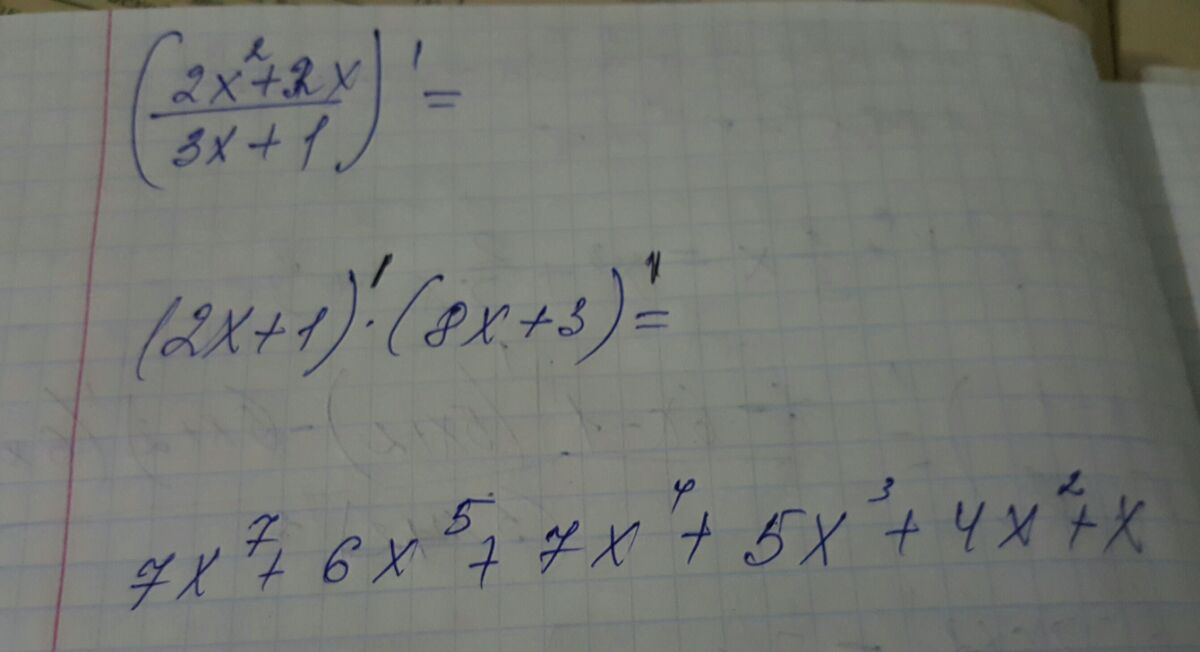 (2x²+2x / 3x+1)' =
(2x+1)'·(8x+3)' =
7x⁷+6x⁵+7x⁴+5x³+4x²+x